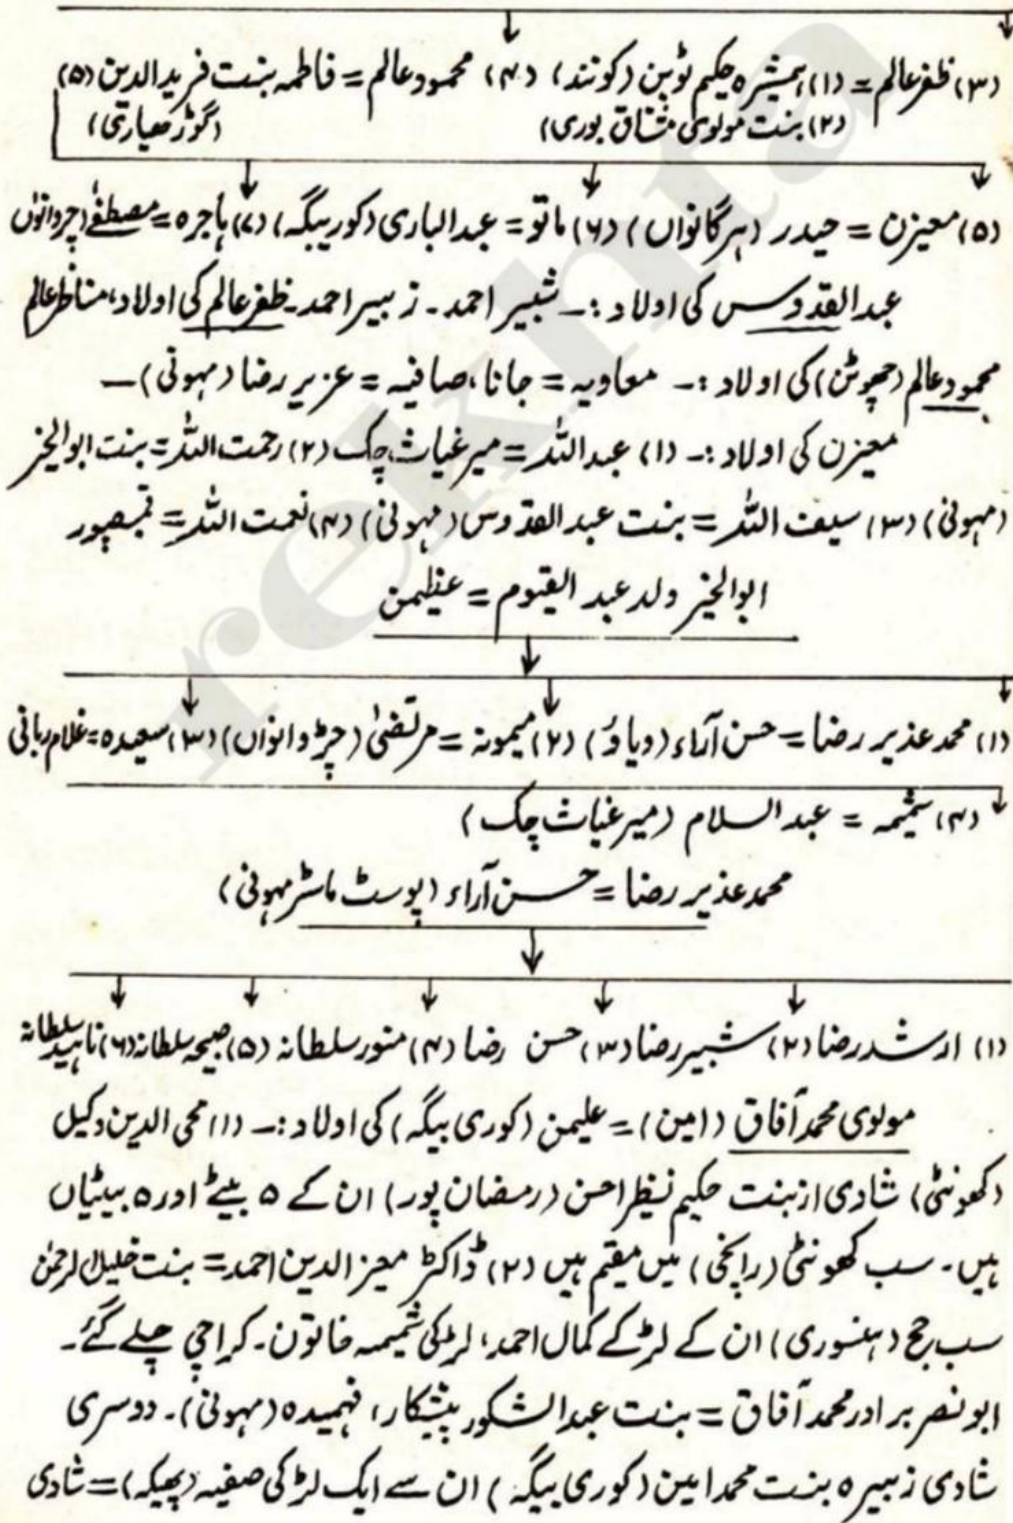 (۳) ظفر عالم = (۱) ہمشیرہ حکیم ٹوبن (کونند) (۴) محمود عالم = فاطمہ بنت فرید الدین (۵)
(۲) بنت مولوی مشتاق بوری) (گوڑھیارتی)
(۵) معیزن = حیدر (ہرگانواں) (۶) ماتو = عبدالباری (کوریبگہ) (۷) ہاجرہ = مصطفےٰ (چروانواں
عبدالقدوس کی اولاد :۔ شبیر احمد۔ زبیر احمد۔ ظفر عالم کی اولاد، مناظر عالم
محمود عالم (چھوٹن) کی اولاد :۔ معاویہ = جانا، صافیہ = عزیر رضا (مہونی) —
معیزن کی اولاد :۔ (۱) عبداللہ = میر غیاث چک (۲) رحمت اللہ = بنت ابوالخیر
(مہونی) (۳) سیف اللہ = بنت عبدالقدوس (مہونی) (۴) نعمت اللہ = قیصپور
ابوالخیر ولد عبدالقیوم = عظیمن
(۱) محمد عذیر رضا = حسن آراء (دیاوٗ) (۲) میمونہ = مرتضیٰ (چڑوانواں) (۳) سعیدہ = غلام ربانی
(۴) شمیمہ = عبدالسلام (میر غیاث چک)
محمد عذیر رضا = حسن آراء (پوسٹ ماسٹر مہونی)
(۱) ارشد رضا (۲) شبیر رضا (۳) حسن رضا (۴) منور سلطانہ (۵) صبیحہ سلطانہ (۶) ناہید سلطانہ
مولوی محمد آفاق (امین) = علیمن (کوری بیگہ) کی اولاد :۔ (۱) محی الدین وکیل
(کھونٹی) شادی از بنت حکیم نظر احسن (رمضان پور) ان کے ۵ بیٹے اور ۵ بیٹیاں
ہیں۔ سب کھونٹی (رانچی) میں مقیم ہیں (۲) ڈاکٹر معیز الدین احمد = بنت خلیل الرحمٰن
سب جج (ہنسوری) ان کے لڑکے کمال احمد، لڑکی شمیمہ خاتون۔ کراچی چلے گئے۔
ابونصر برادر محمد آفاق = بنت عبدالشکور پیشکار، فہمیدہ (مہونی)۔ دوسری
شادی زبیرہ بنت محمد امین (کوری بیگہ) ان سے ایک لڑکی صفیہ (پھیکہ) = شادی
rekhta